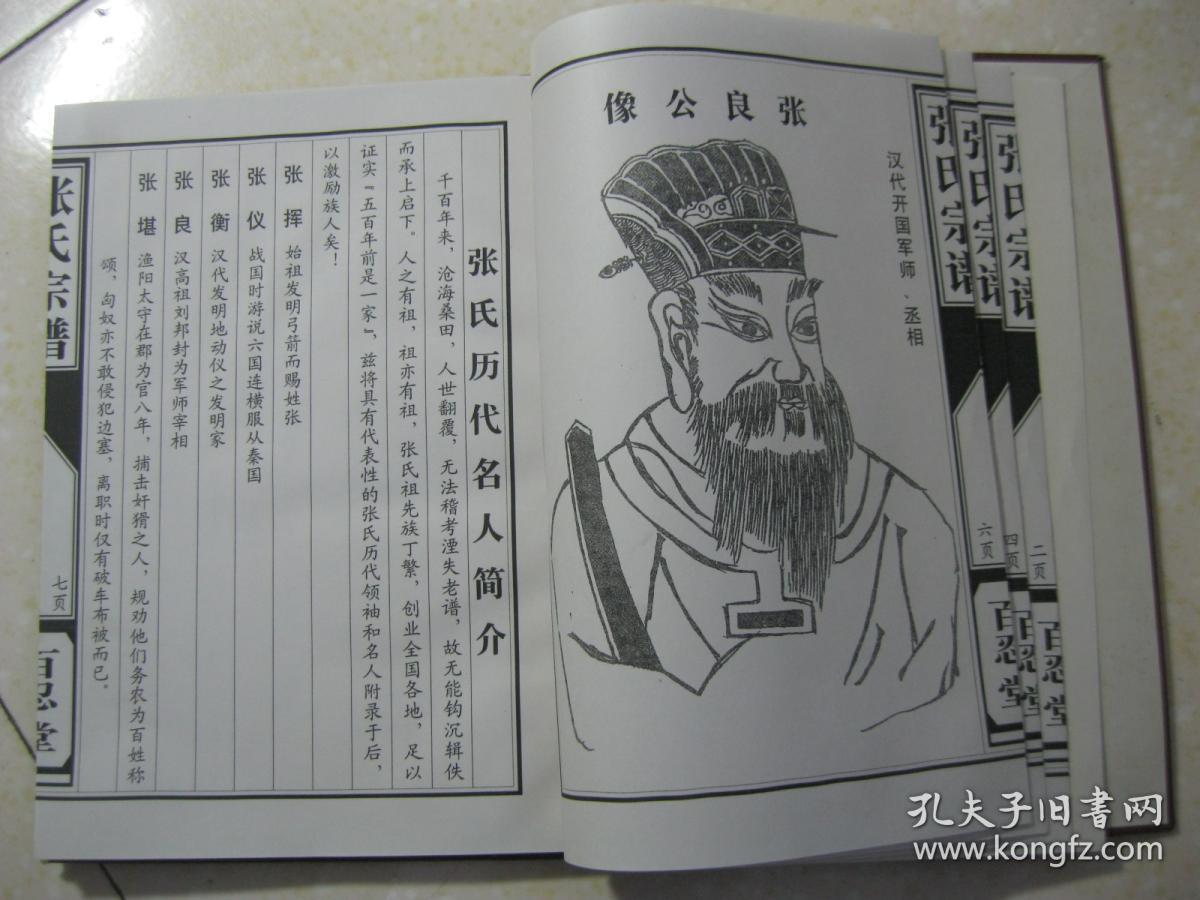 张良公像
汉代开国军师、丞相
张氏宗谱
六页
百忍堂
张氏宗谱
四页
百忍堂
张氏宗谱
二页
百忍堂
张氏历代名人简介
千百年来，沧海桑田，人世翻覆，无法稽考湮失老谱，故无能钩沉辑佚
而承上启下。人之有祖，祖亦有祖，张氏祖先族丁繁，创业全国各地，足以
证实『五百年前是一家』，兹将具有代表性的张氏历代领袖和名人附录于后，
以激励族人矣！
张挥 始祖发明弓箭而赐姓张
张仪 战国时游说六国连横服从秦国
张衡 汉代发明地动仪之发明家
张良 汉高祖刘邦封为军师宰相
张堪 渔阳太守在郡为官八年，捕击奸猾之人，规劝他们务农为百姓称
颂，匈奴亦不敢侵犯边塞，离职时仅有破车布被而已。
张氏宗谱
七页
百忍堂
孔夫子旧书网
www.kongfz.com